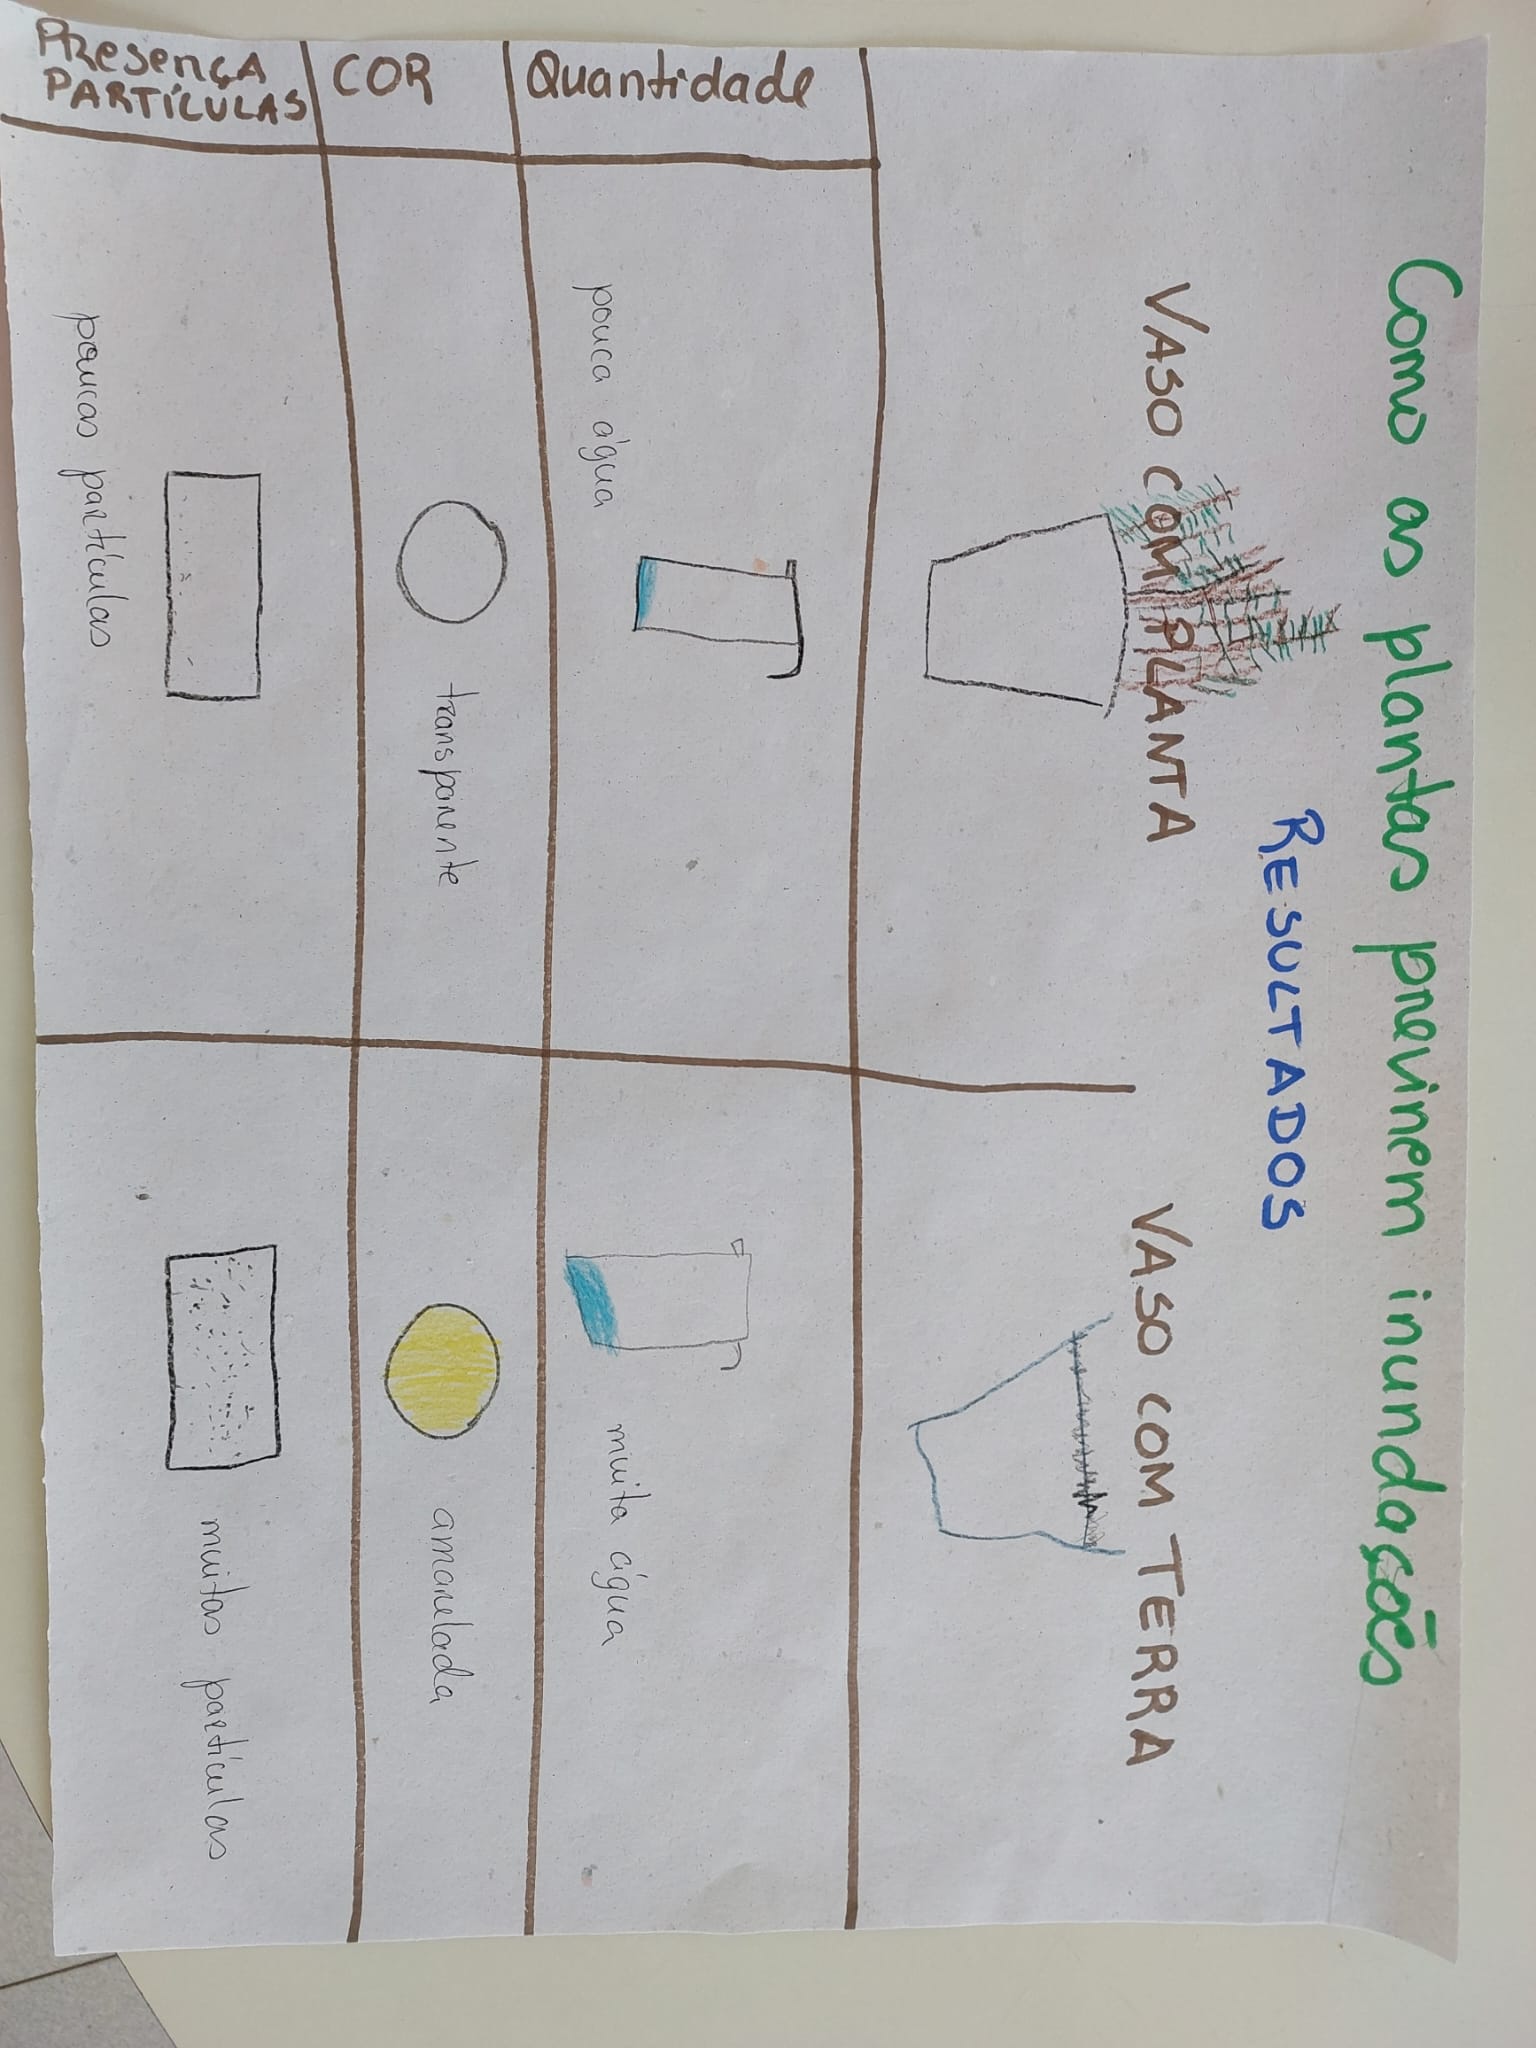 Como as plantas previnem inundações
RESULTADOS
VASO COM PLANTA
VASO COM TERRA
Quantidade
pouca água
muita água
COR
transparente
amarelada
PRESENÇA
PARTÍCULAS
poucas partículas
muitas partículas